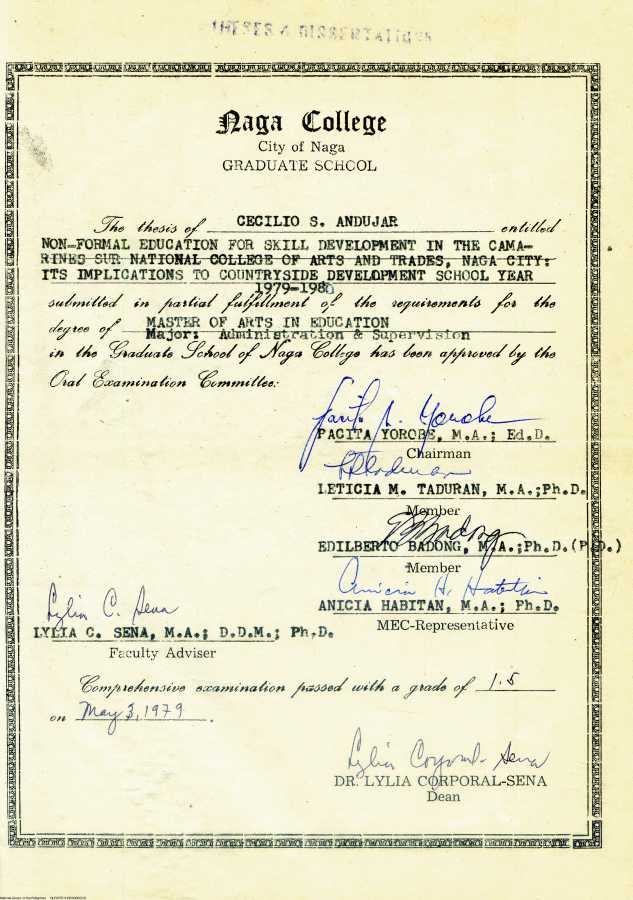 THESES & DISSERTATIONS
Naga College
City of Naga
GRADUATE SCHOOL
The thesis of CECILIO S. ANDUJAR entitled
NON-FORMAL EDUCATION FOR SKILL DEVELOPMENT IN THE CAMA-
RINES SUR NATIONAL COLLEGE OF ARTS AND TRADES, NAGA CITY:
ITS IMPLICATIONS TO COUNTRYSIDE DEVELOPMENT SCHOOL YEAR
1979-1980
submitted in partial fulfillment of the requirements for the
degree of MASTER OF ARTS IN EDUCATION
Major: Administration & Supervision
in the Graduate School of Naga College has been approved by the
Oral Examination Committee:
PACITA YOROBE, M.A.; Ed.D.
Chairman
LETICIA M. TADURAN, M.A.;Ph.D.
Member
EDILBERTO BADONG, M.A.;Ph.D.(P.D.)
Member
Anicia H. Habitan
ANICIA HABITAN, M.A.; Ph.D.
MEC-Representative
Lylia C. Sena
LYLIA C. SENA, M.A.; D.D.M.; Ph.D.
Faculty Adviser
Comprehensive examination passed with a grade of 1.5
on May 3, 1979.
Lylia Corporal-Sena
DR. LYLIA CORPORAL-SENA
Dean